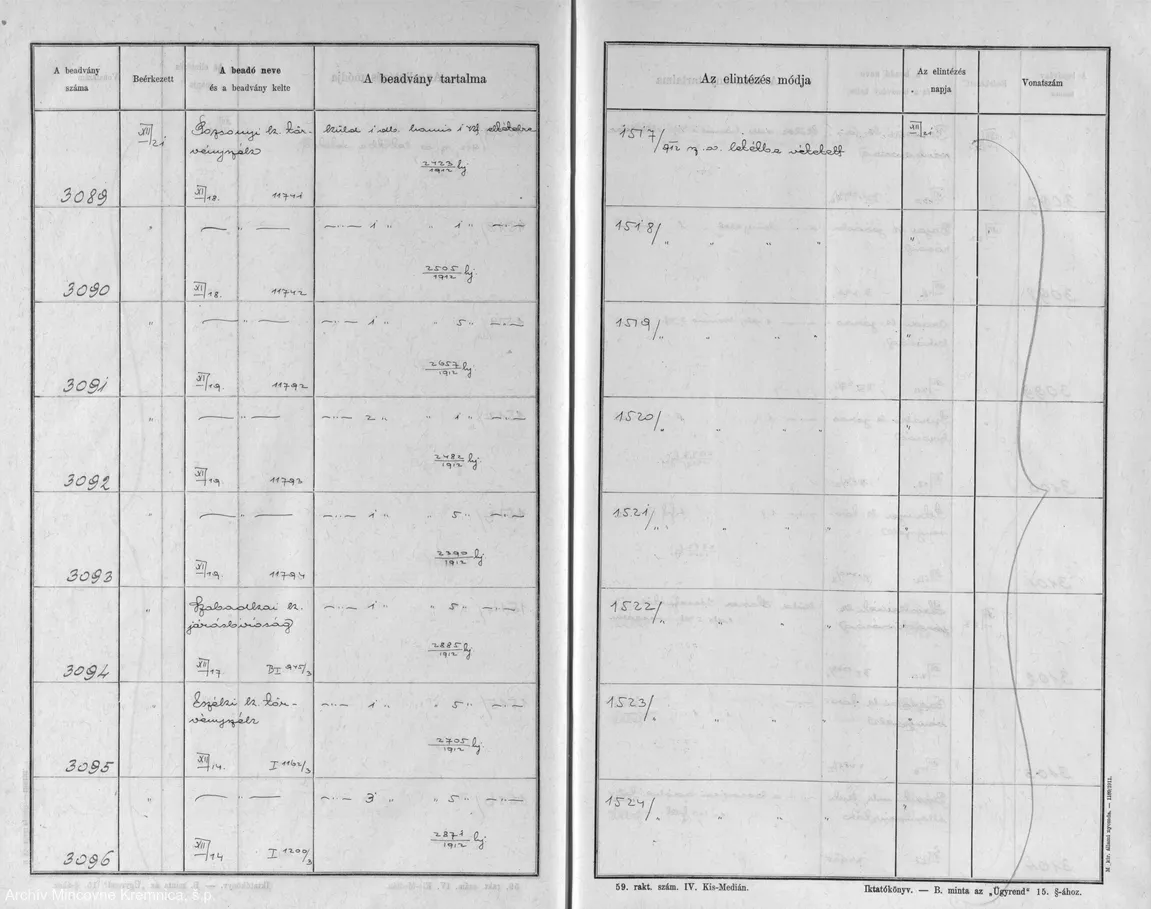 A beadvány száma
Beérkezett
A beadó neve és a beadvány kelte
A beadvány tartalma
3089
XII/21
Pozsonyi k. tör-
vényszék
XII/18. 11741
küld 1 db. hamis 1 Kf
2423/1912 bj
3090
" — " —
XII/18. 11742
—··— 1 " " 1 " —··—
2505/1912 bj.
3091
" — " —
XII/19. 11792
—··— 1 " " 5 " —··—
2657/1912 bj
3092
" — " —
XII/19. 11793
—··— 2 " " 1 " —··—
2482/1912 bj.
3093
" — " —
XII/19. 11794
—··— 1 " " 5 " —··—
2390/1912 bj.
3094
" Szabadkai k.
járásbíróság
XII/17 B I 945/3
—··— 1 " " 5 " —··—
2885/1912 bj
3095
Eszéki k. tör-
vényszék
XII/14. I 1162/3
—··— 1 " " 5 " —··—
2705/1912 bj.
3096
" — " —
XII/14 I 1200/3
—··— 3 " " 5 " —··—
2871/1912 bj
Az elintézés módja
Az elintézés napja
Vonatszám
1517/912 sz. a. letétbe vétetett
XII/21
1518/" " " "
"
1519/" " " "
"
1520/" " " "
"
1521/" " " "
"
1522/" " " "
"
1523/" " " "
"
1524/" " " "
"
M. kir. állami nyomda. — 1189/1911.
59. rakt. szám. IV. Kis-Medián.
Iktatókönyv. — B. minta az „Ügyrend" 15. §-ához.
Archív Mincovne Kremnica, š.p.